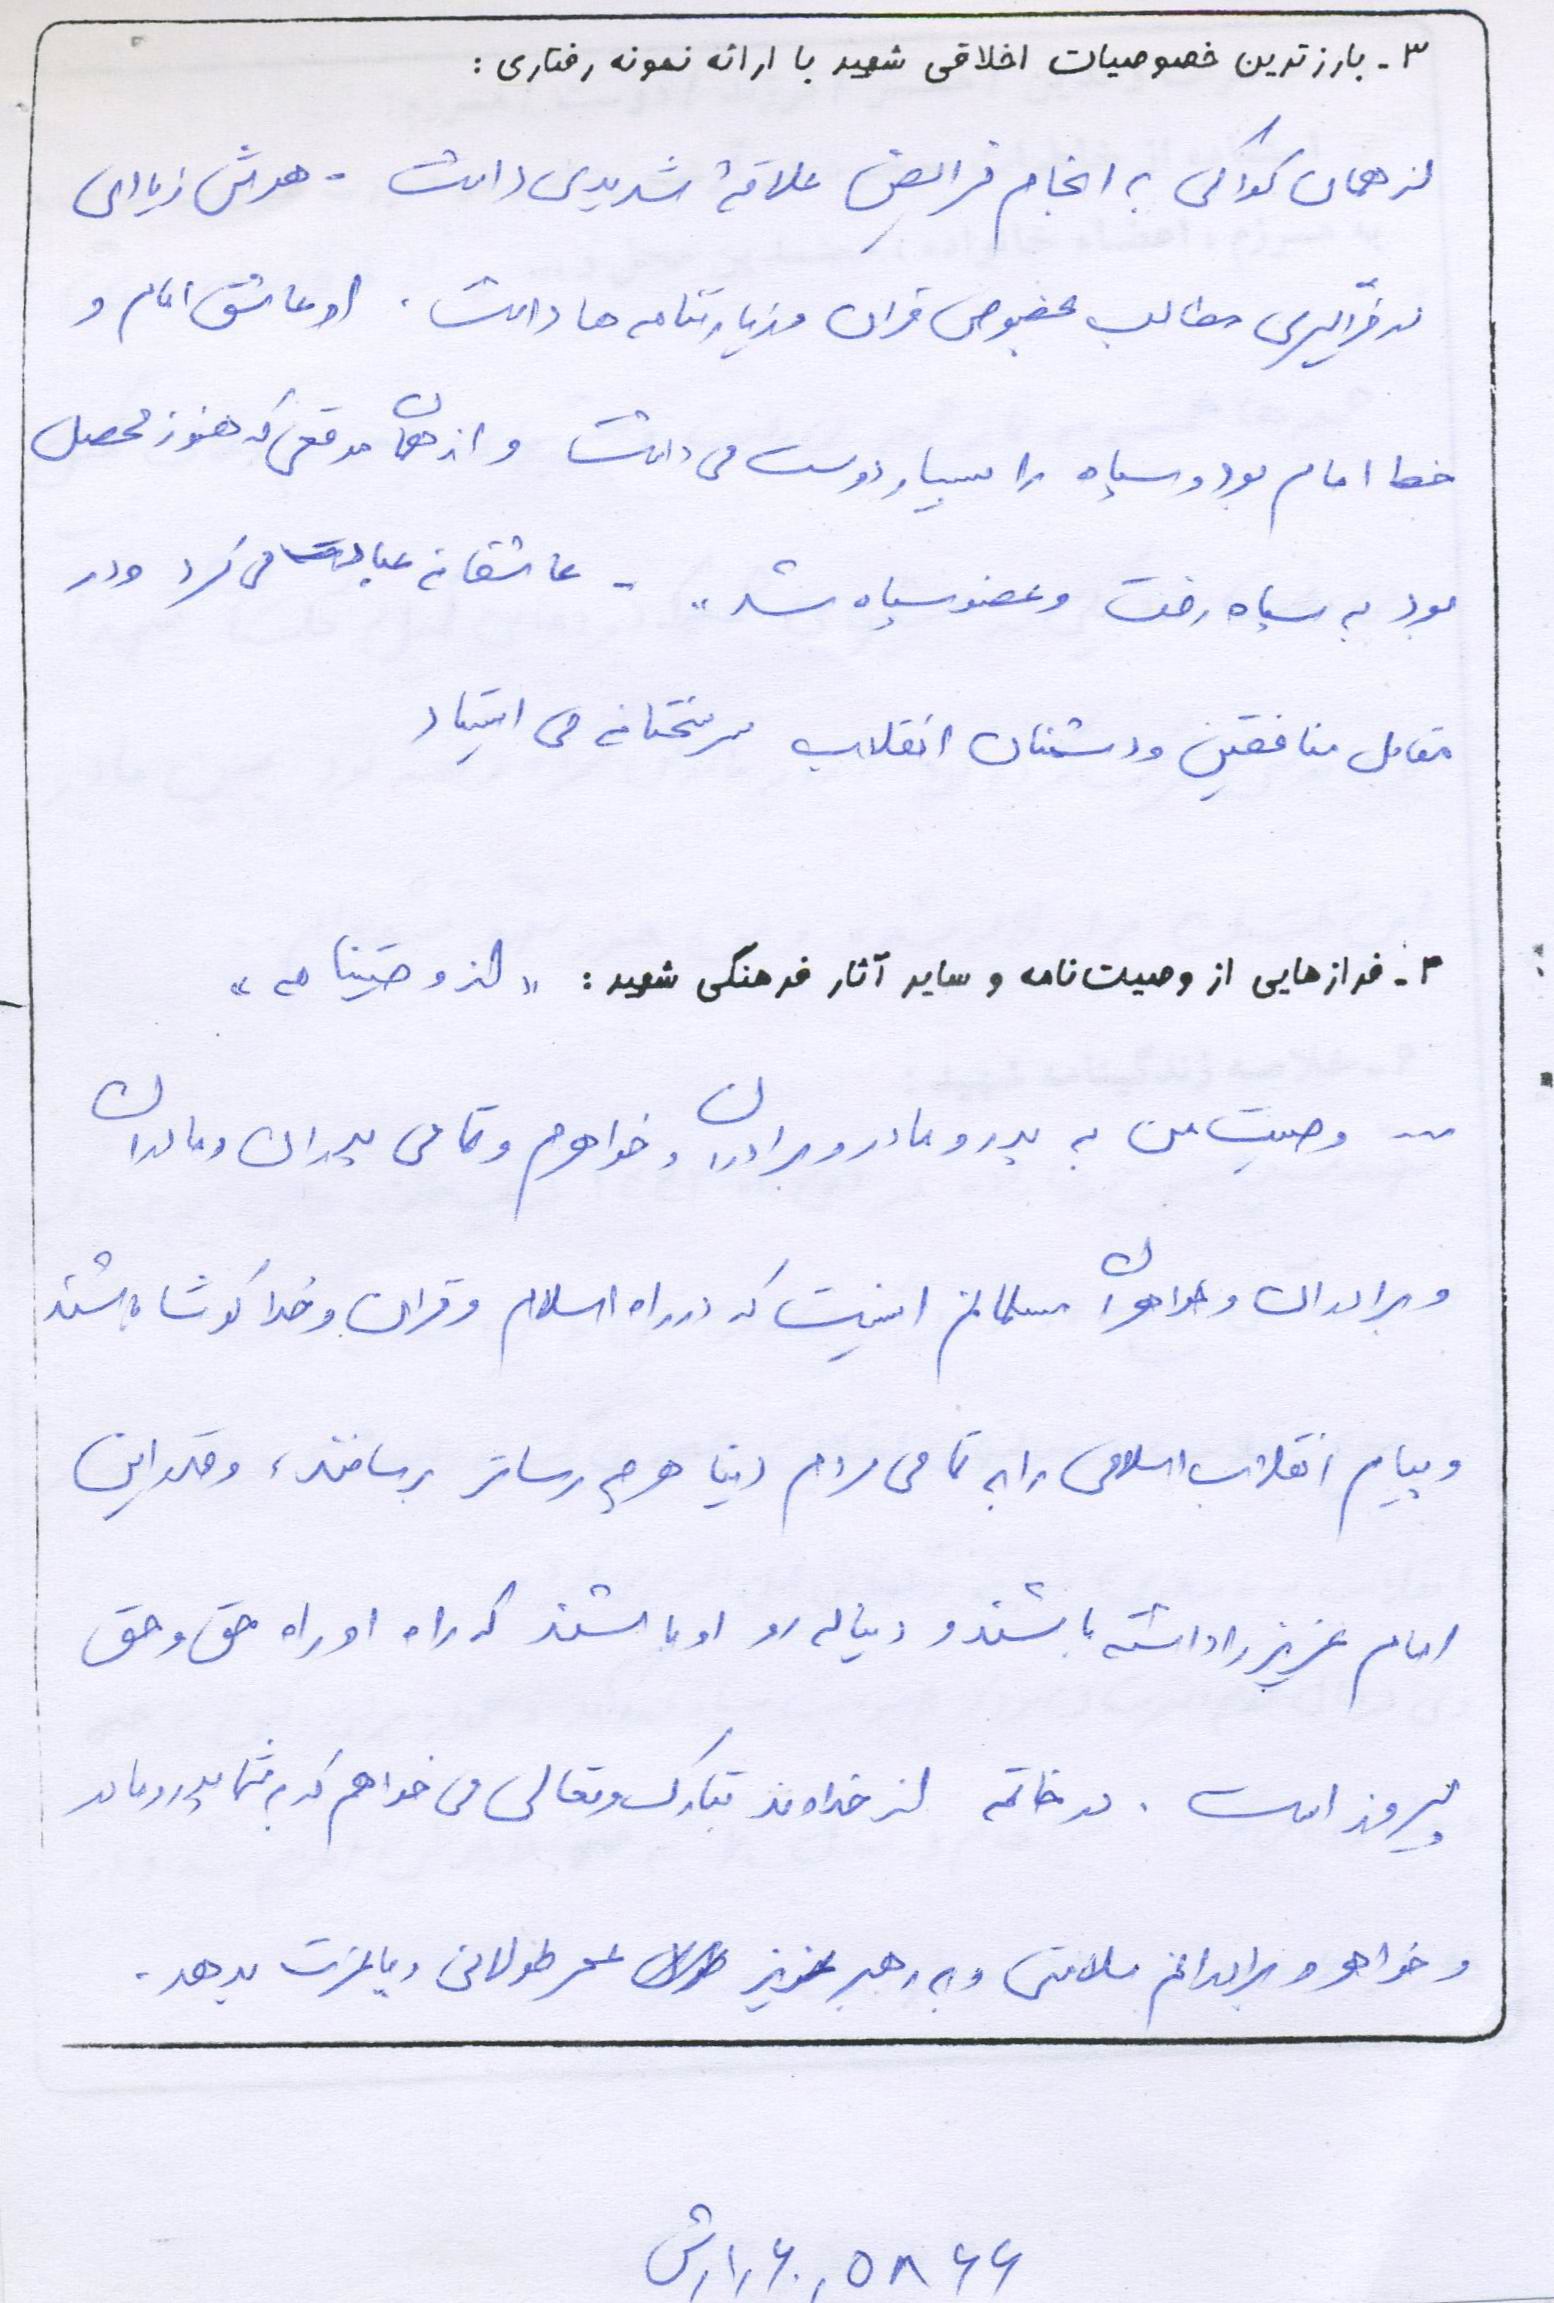 ۳ـ بارزترین خصوصیات اخلاقی شهید با ارائه نمونه رفتاری :
از همان کودکی به انجام فرایض علاقهٔ شدیدی داشت - هوش زیادی
در فراگیری مطالب بخصوص قران و زیارتنامه ها داشت . او عاشق امام و
خط امام بود و سپاه را بسیار دوست می داشت و از همان موقعی که هنوز محصل
بود به سپاه رفت و عضو سپاه شد .. - عاشقانه عبادت می کرد و در
مقابل منافقین و دشمنان انقلاب سرسختانه می ایستاد
۴ـ فرازهایی از وصیت‌نامه و سایر آثار فرهنگی شهید : « از وصیتنامه »
... وصیت من به پدر و مادر و برادران و خواهرم و تمامی پدران و مادران
و برادران و خواهران مسلمانم اینست که در راه اسلام و قران و خدا کوشا باشند
و پیام انقلاب اسلامی را به تمامی مردم دنیا هر چه رساتر برسانند ، و قدر این
امام عزیز را داشته باشند و دنباله رو او باشند که راه او راه حق و حق
پیروز است . در خاتمه از خداوند تبارک و تعالی می خواهم که به شما پدر و مادر
و خواهر و برادرانم سلامتی و به رهبر عزیز عمر طولانی و با عزت بدهد .